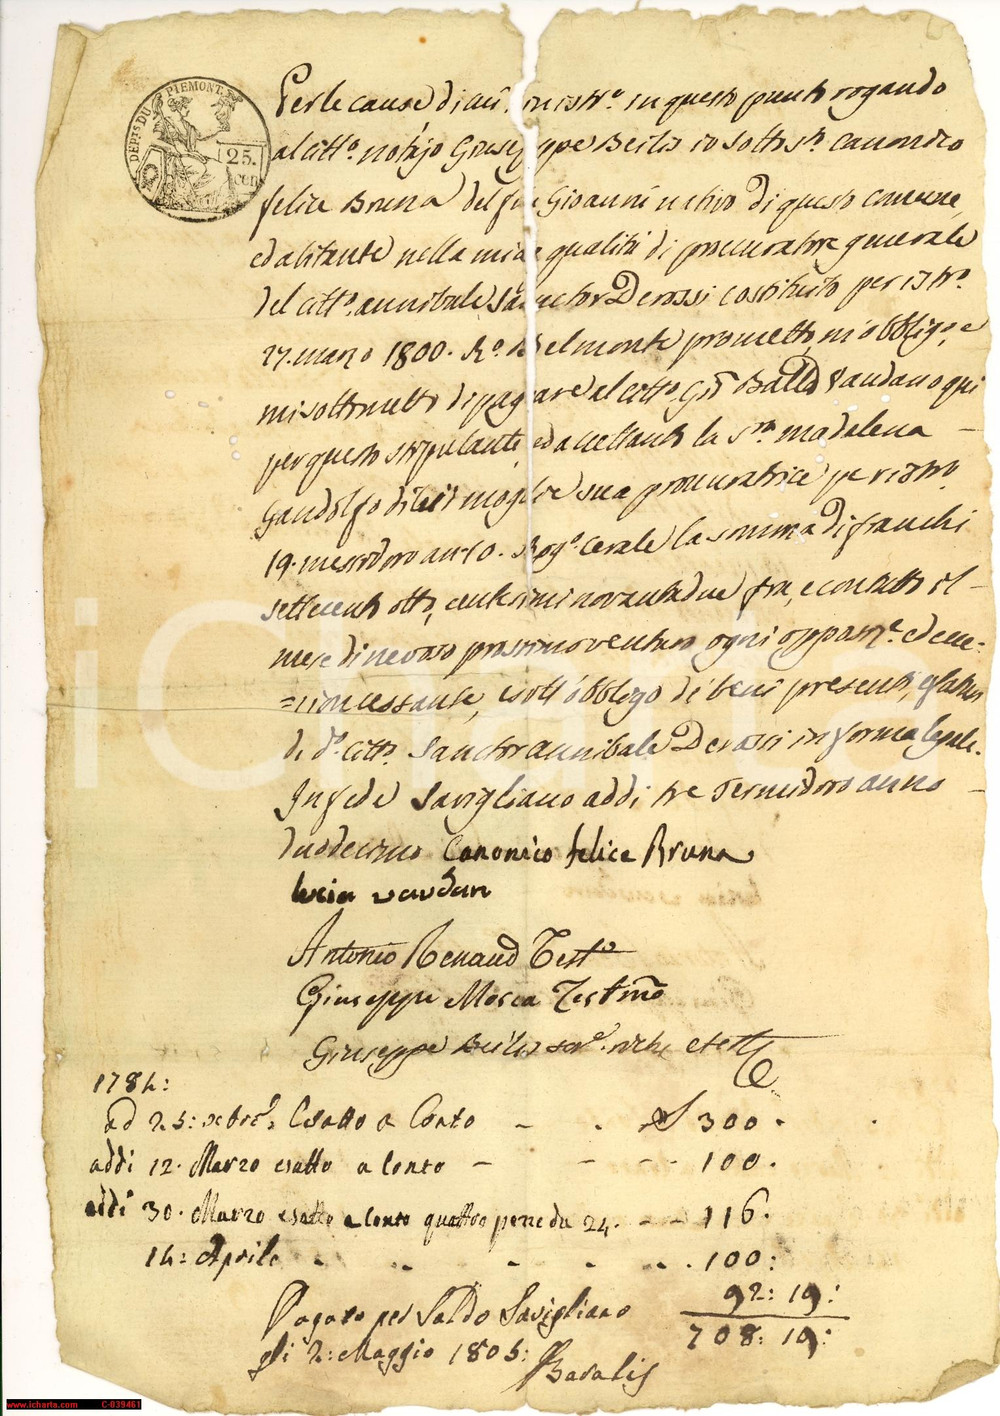 DEPTS DU PIEMONT.
25.
cen
Per le cause di cui in istro. in questo punto rogando
al citto. notajo Giuseppe Beilis io sottosto. canonico
felice Bruna del fu Gioanni nativo di questo comune,
ed abitante nella mia qualità di procuratore generale
del citto. annibale Sanctor Derossi costituito per istro.
27. marzo 1800. Ro. Delmonte prometto, m'obbligo, e
mi sottometto di pagare al citto. Gio Batta Vaudano qui
per questo stipulante, ed accettante la sra. madalena
Gandolfo di lei moglie sua procuratrice per istro.
19. messidoro an. 10. Rogo. Cerale la somma di franchi
settecento otto, centesimi novantadue fra, e con tutto il
mese di nevoso prossimo venturo, ogni oppos.e ed ecce:
=zione cessante, e sott'obbligo de' beni presenti, e futuri
di do. citto. Sanctor Annibale Derossi in forma legale.
In fede Savigliano addi tre Termidoro anno
duodecimo Canonico felice Bruna
lucia vaudan
Antonio Renaud Testo.
Giuseppe Mosca Testimo
Giuseppe Beilis
1784:
ad 25: xbre. Esatto a Conto 300.
addi 12. Marzo esatto a Conto 100.
addi 30. Marzo esatto a Conto quattro pezze da 24. 116.
14: Aprile 100:
92: 19:
Pagato per Saldo Savigliano
708: 19:
gli 2: Maggio 1805:
Basalis
iCharta
www.icharta.com C-039461